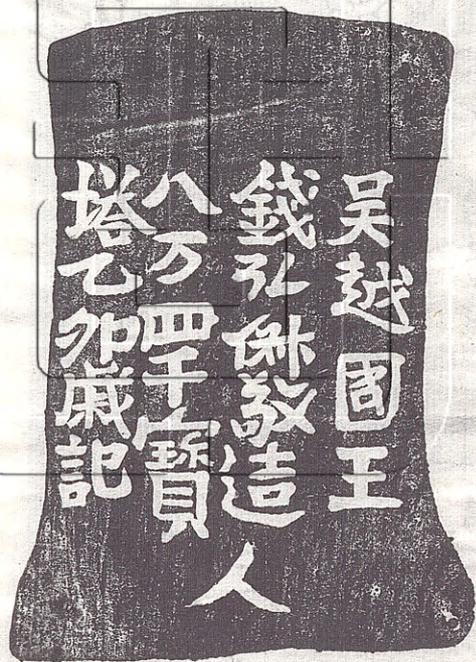 吴越國王
錢弘俶敬造
八万四千寶
塔乙卯歲記
人